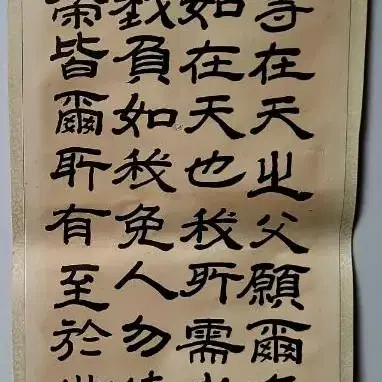 等在天之父願爾名
如在天也我所需
我負如我免人勿
榮皆爾所有至於世